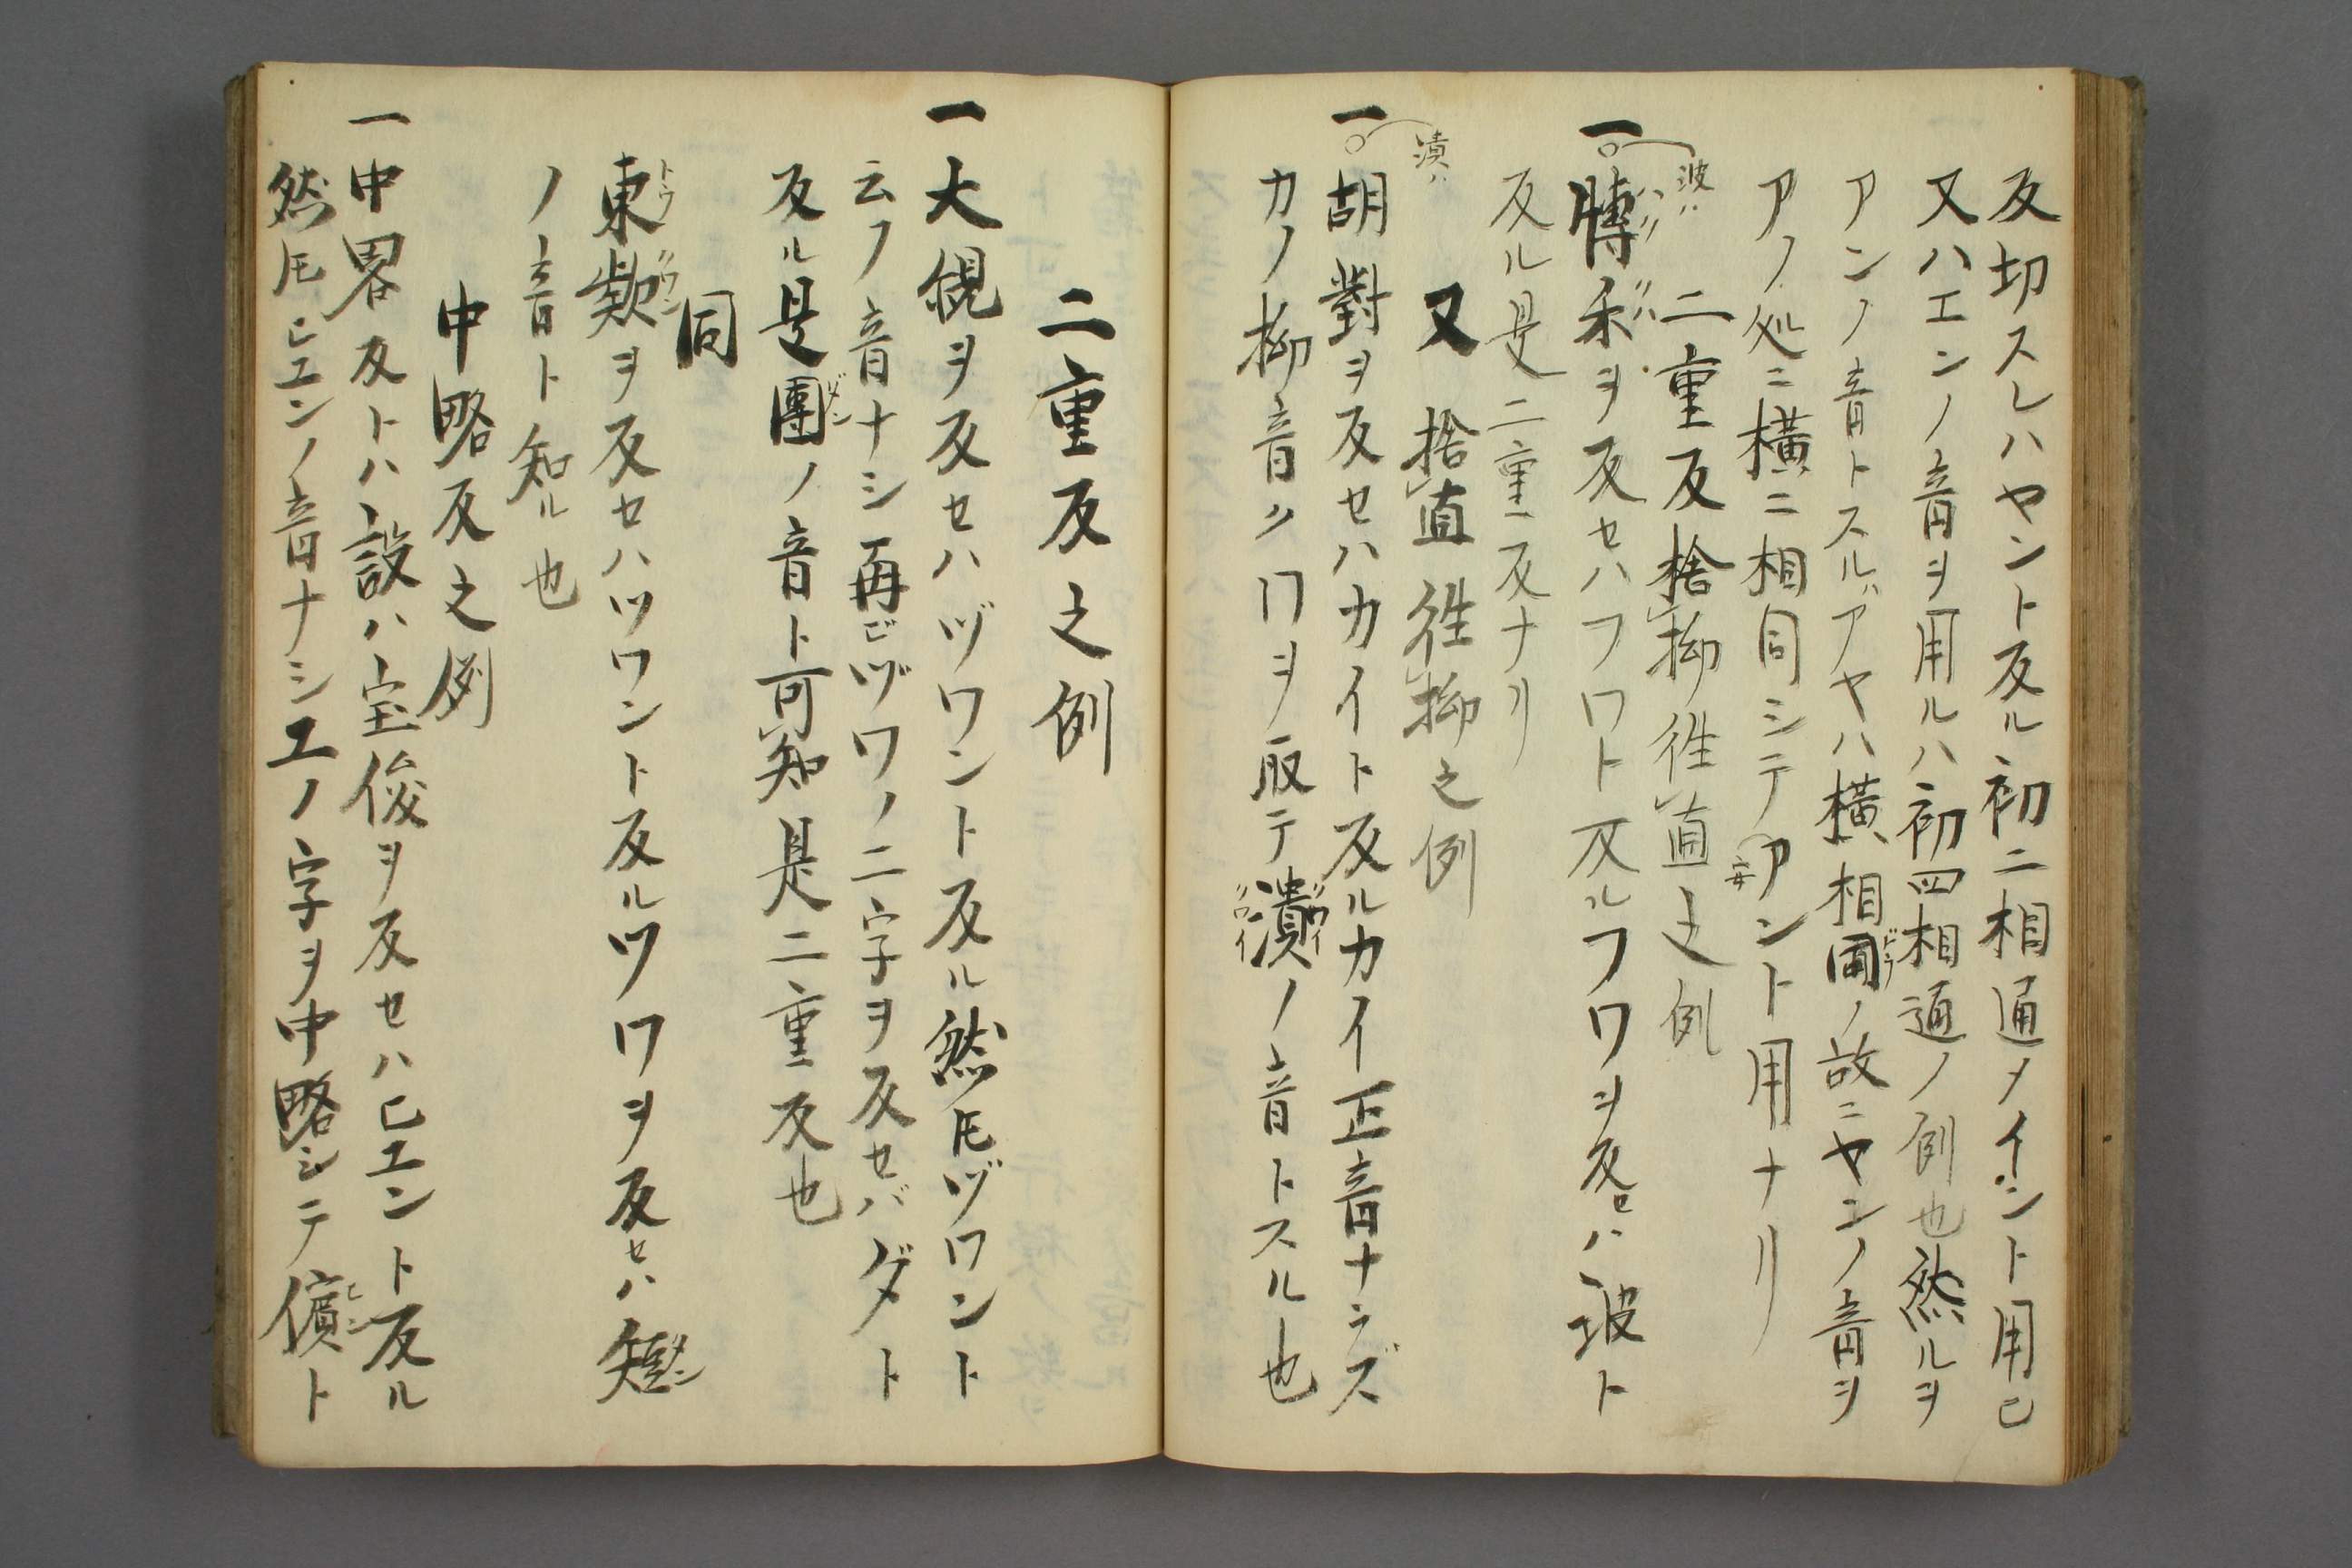 反切スレハヤント反ル初二相通メイント用ヒ
又ハエンノ音ヲ用ルハ初四相通ノ例也然ルヲ
アンノ音トスルアヤハ横相同ノ故ニヤンノ音ヲ
アノ処ニ横ニ相同シテアント用ナリ
二重反捨拗徃直之例
波ハ
一膊禾ヲ反セハフワト反ルフワヲ反セハ波ト
反ル是二重反ナリ
又捨直徃拗之例
潰ハ
一胡對ヲ反セハカイト反ルカイ正音ナラズ
カノ拗音クワヲ取テ潰ノ音トスル也
二重反之例
一大䋎ヲ反セハヅワント反ル然モヅワント
云フ音ナシ再ビヅワノ二字ヲ反セバダト
反ル是團ノ音ト可知是二重反也
同
東欵ヲ反セハツワント反ルツワヲ反セハ短
ノ音ト知ル也
中略反之例
一中畧反トハ設ハ宝俊ヲ反セハヒエント反ル
然モヒエンノ音ナシエノ字ヲ中略シテ儐ト